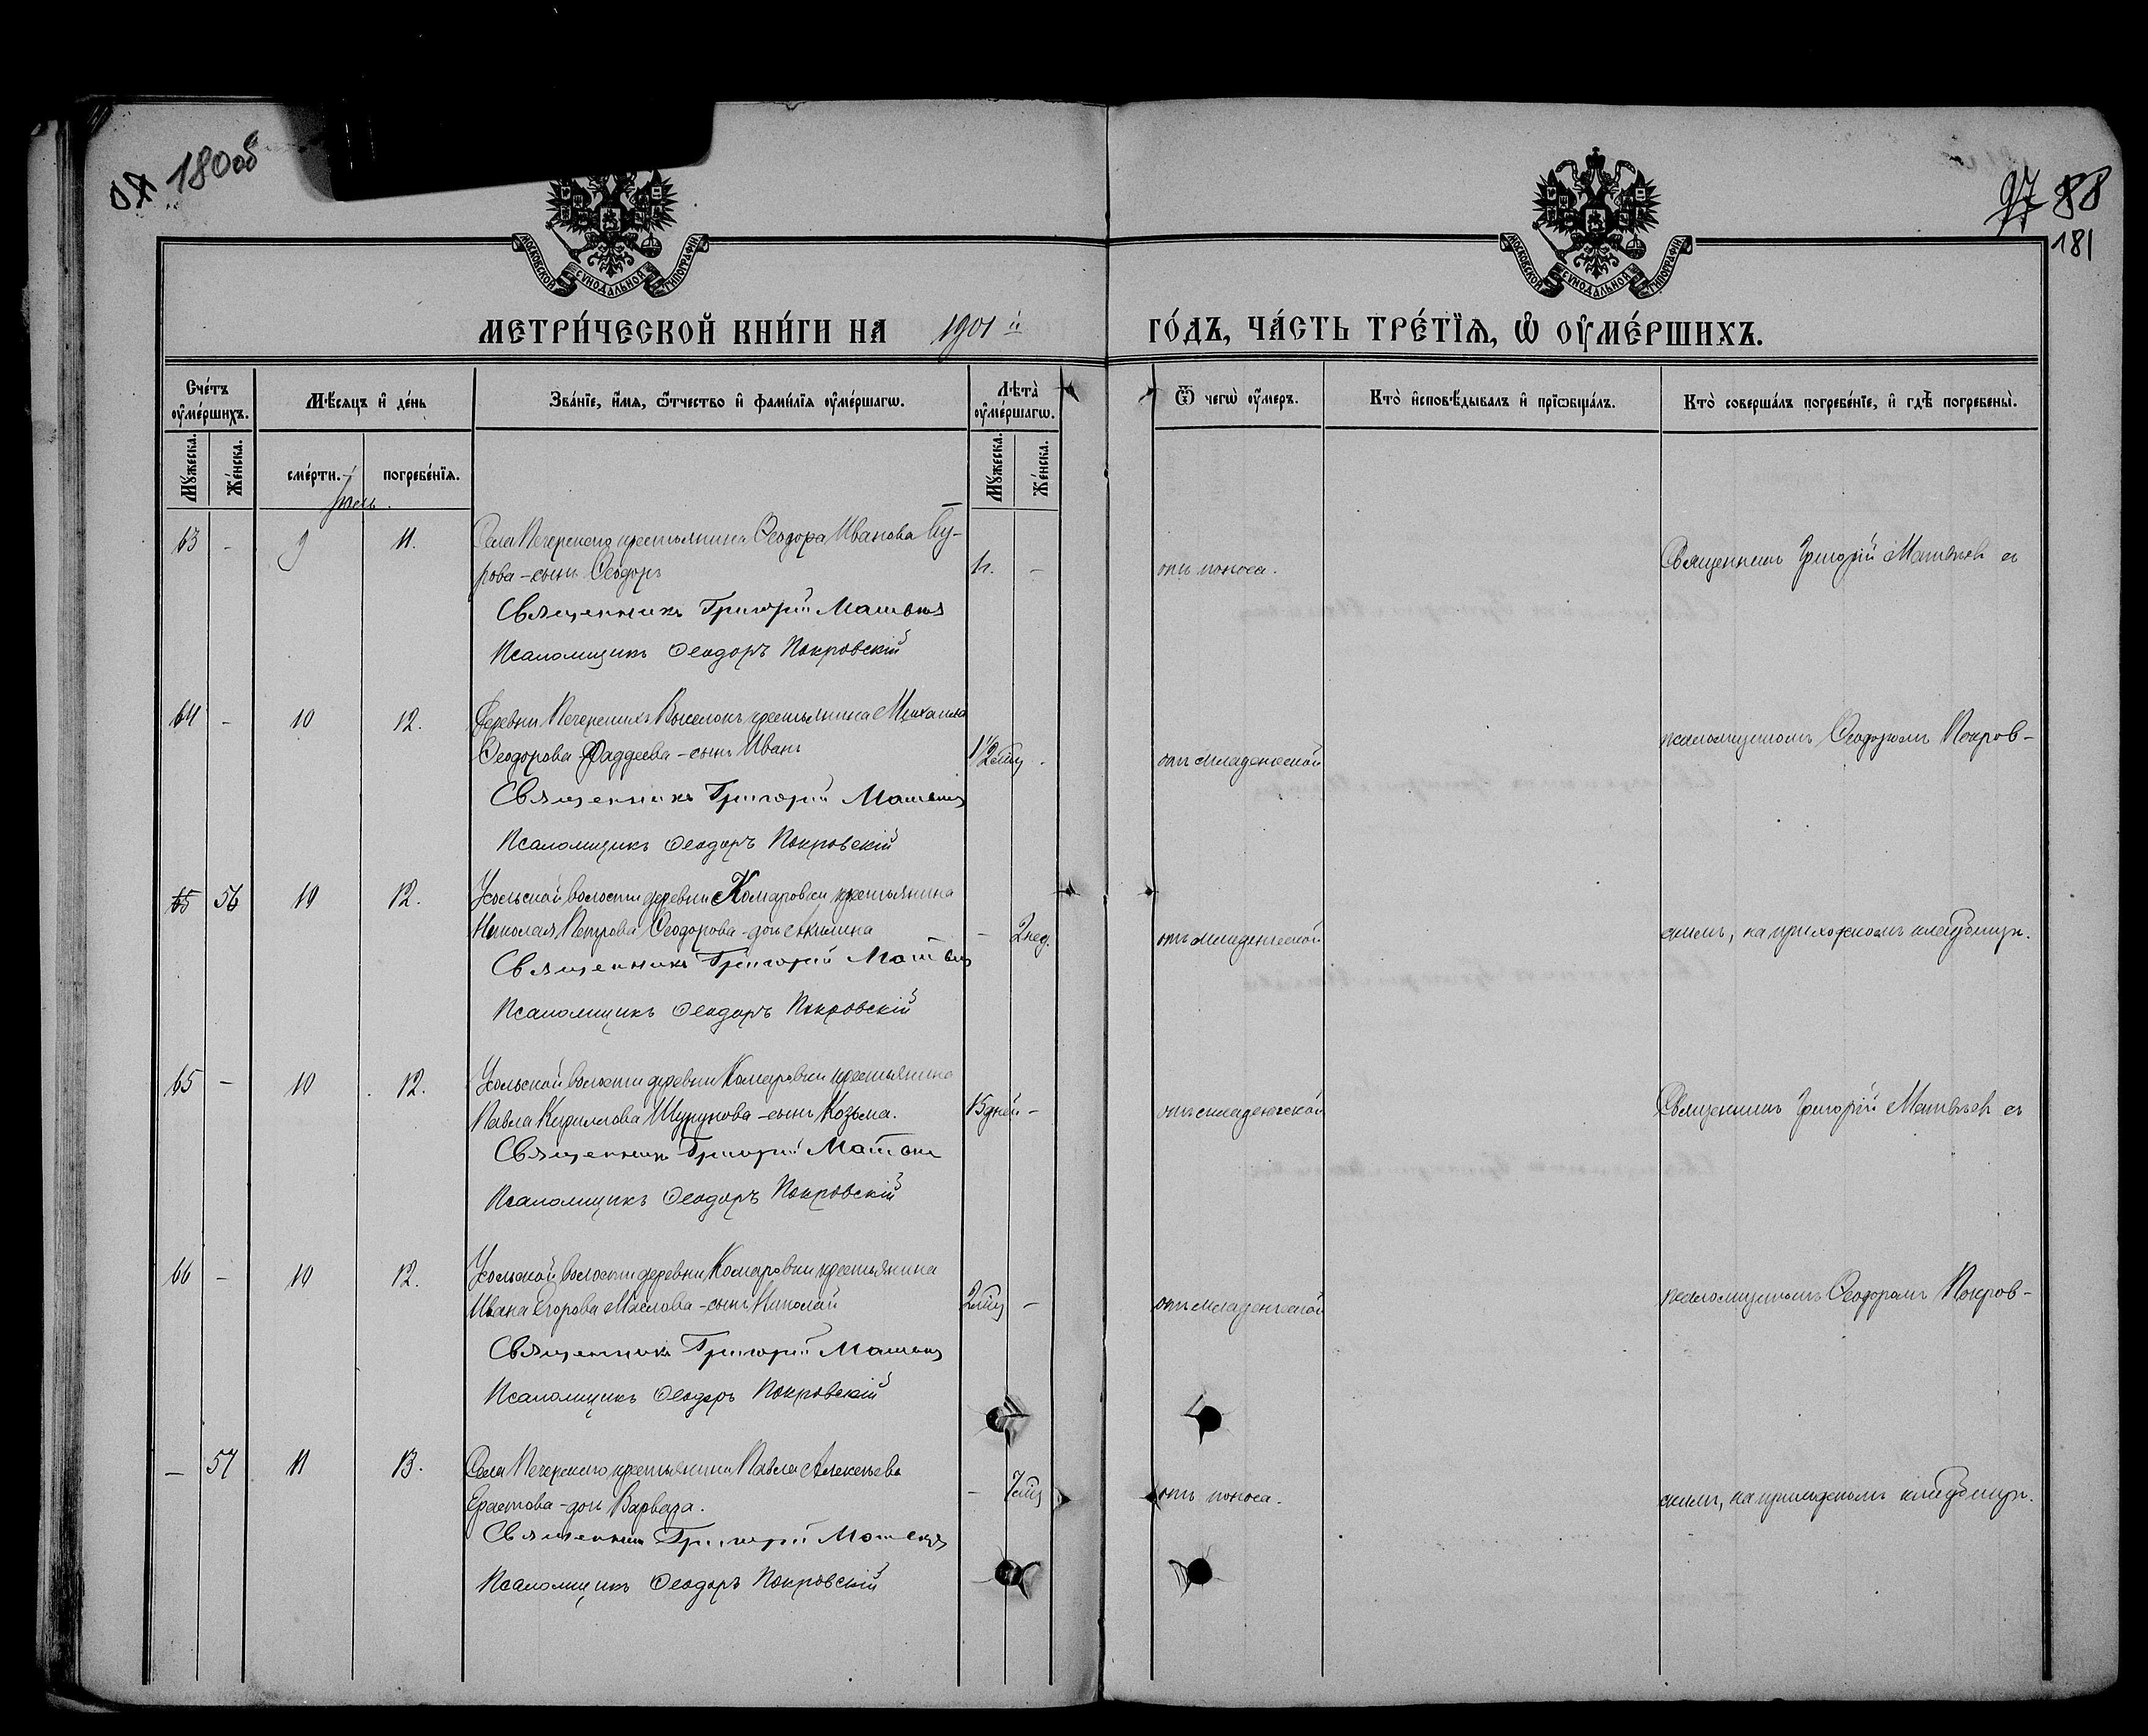 180об
97 88
181
МОСКОВСКОЙ СѴНОДАЛЬНОЙ ТИПОГРАФІИ
МОСКОВСКОЙ СѴНОДАЛЬНОЙ ТИПОГРАФІИ
МЕТРИ́ЧЕСКОЙ КНИ́ГИ НА 1901й ГО́ДЪ, ЧА́СТЬ ТРЕ́ТЇѦ, Ѡ҆ ОУ҆МЕ́РШИХЪ.
Сче́тъ оу҆ме́ршихъ.
Мꙋ́жеска.
Же́нска.
Мѣ́сѧцъ и҆ де́нь
сме́рти.
погребе́нїѧ.
Зва́нїе, и҆́мѧ, ѻ҆́тчество и҆ фами́лїѧ оу҆ме́ршагѡ.
Лѣта̀ оу҆ме́ршагѡ.
Мꙋ́жеска.
Же́нска.
Ѿ чегѡ̀ оу҆́меръ.
Кто̀ и҆сповѣ́дывалъ и҆ прїѡбща́лъ.
Кто̀ соверша́лъ погребе́нїе, и҆ гдѣ̀ погребены̀.
Іюль.
63 - 9 11. Села Печерскаго крестьянина Ѳеодора Иванова Бу-
рова - сынъ Ѳеодоръ - отъ поноса. Священникъ Григорій Матвѣевъ съ
Священникъ Григорій Матвѣевъ
Псаломщикъ Ѳеодоръ Покровскій
64 - 10 12. Деревни Печерскихъ Выселокъ крестьянина Михаила
Ѳеодорова Фаддеева - сынъ Иванъ 1 1/2 мѣц. отъ младенческой псаломщикомъ Ѳеодоромъ Покров-
Священникъ Григорій Матвѣевъ
Псаломщикъ Ѳеодоръ Покровскій
65 56 10 12. Усольской волости деревни Комаровки крестьянина
Николая Петрова Ѳеодорова - дочь Акилина - 2 нед. отъ младенческой скимъ, на приходскомъ кладбищѣ.
Священникъ Григорій Матвѣевъ
Псаломщикъ Ѳеодоръ Покровскій
65 - 10 12. Усольской волости деревни Комаровки крестьянина
Павла Кириллова Шурунова - сынъ Козьма. 15 дней - отъ младенческой Священникъ Григорій Матвѣевъ съ
Священникъ Григорій Матвѣевъ
Псаломщикъ Ѳеодоръ Покровскій
66 - 10 12. Усольской волости деревни Комаровки крестьянина
Ивана Егорова Маслова - сынъ Николай 2 мѣц - отъ младенческой псаломщикомъ Ѳеодоромъ Покров-
Священникъ Григорій Матвѣевъ
Псаломщикъ Ѳеодоръ Покровскій
- 57 11 13. Села Печерскаго крестьянина Павла Алексѣева
Ерастова - дочь Варвара. - 7 мѣц отъ поноса. скимъ, на приходскомъ кладбищѣ.
Священникъ Григорій Матвѣевъ
Псаломщикъ Ѳеодоръ Покровскій